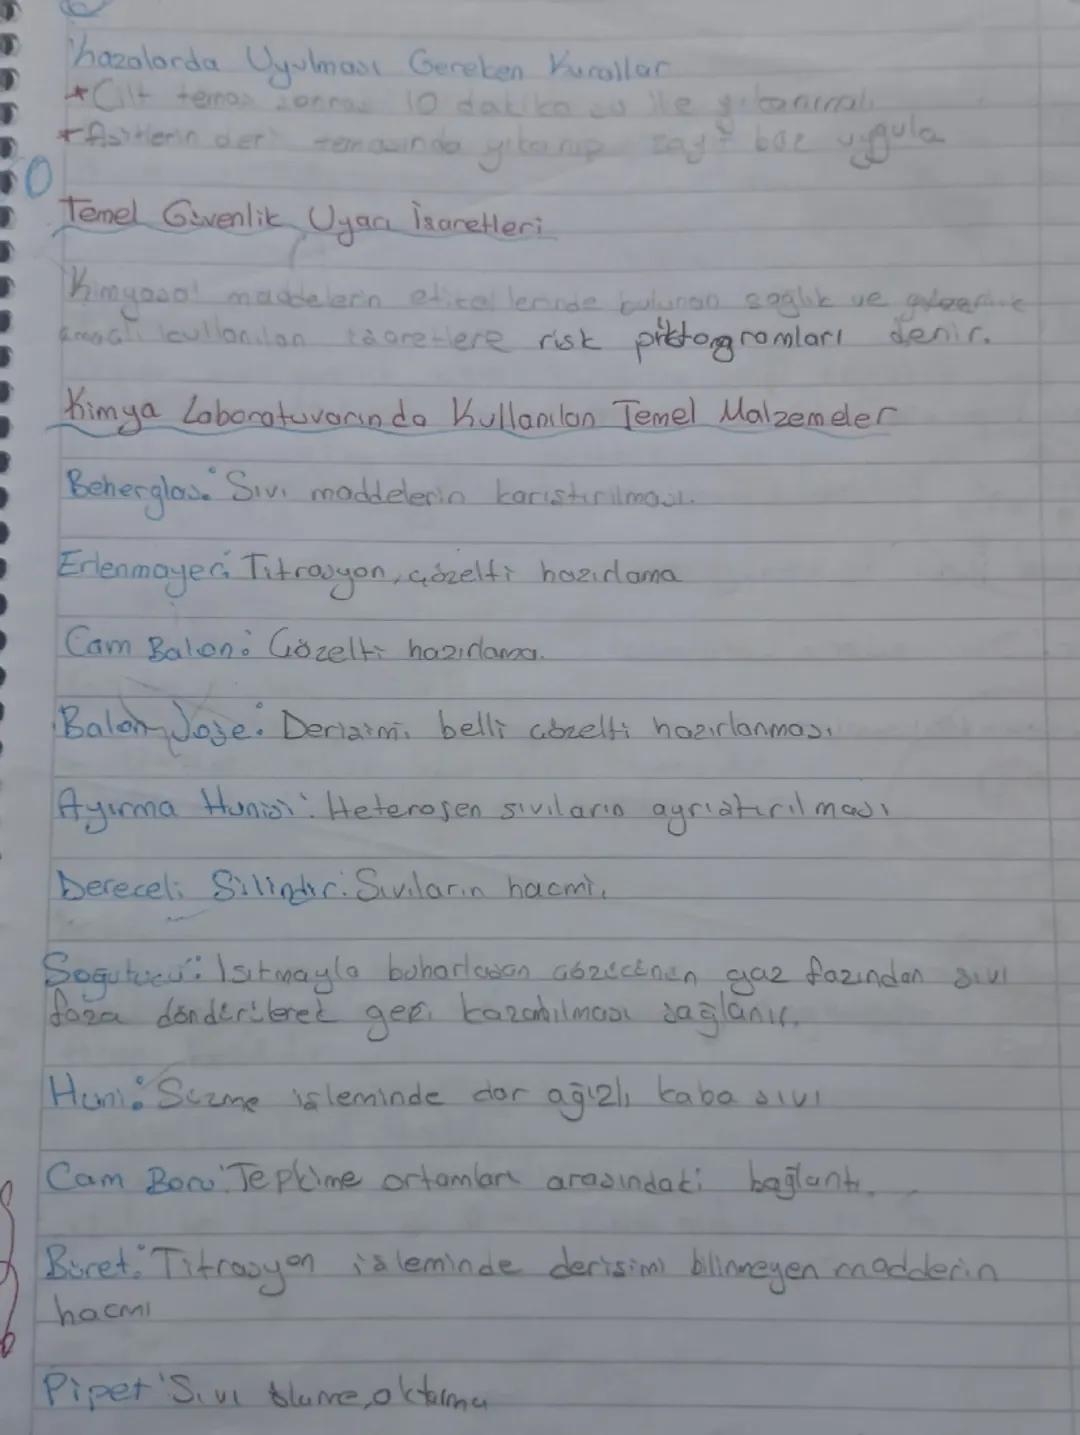 Kazalarda Uyulması Gereken Kurallar
*Cilt teması sonrası 10 dakika su ile yıkanmalı
*Asitlerin deri temasında yıkanıp zayıf baz uygula
Temel Güvenlik Uyarı İşaretleri
Kimyasal maddelerin etiketlerinde bulunan sağlık ve güvenlik
amaçlı kullanılan işaretlere risk piktogramları denir.
Kimya Laboratuvarında Kullanılan Temel Malzemeler
Beherglas: Sıvı maddelerin karıştırılması.
Erlenmayer: Titrasyon, çözelti hazırlama
Cam Balon: Çözelti hazırlama.
Balon Joje: Derişimi belli çözelti hazırlanması
Ayırma Hunisi: Heterojen sıvıların ayrıştırılması
Dereceli Silindir: Sıvıların hacmi.
Soğutucu: Isıtmayla buharlaşan çözücünün gaz fazından sıvı
faza döndürülerek geri kazanılması sağlanır.
Huni: Süzme işleminde dar ağızlı kaba sıvı
Cam Boru: Tepkime ortamları arasındaki bağlantı.
Büret: Titrasyon işleminde derişimi bilinmeyen madderin
hacmi
Pipet: Sıvı ölçme, aktarma